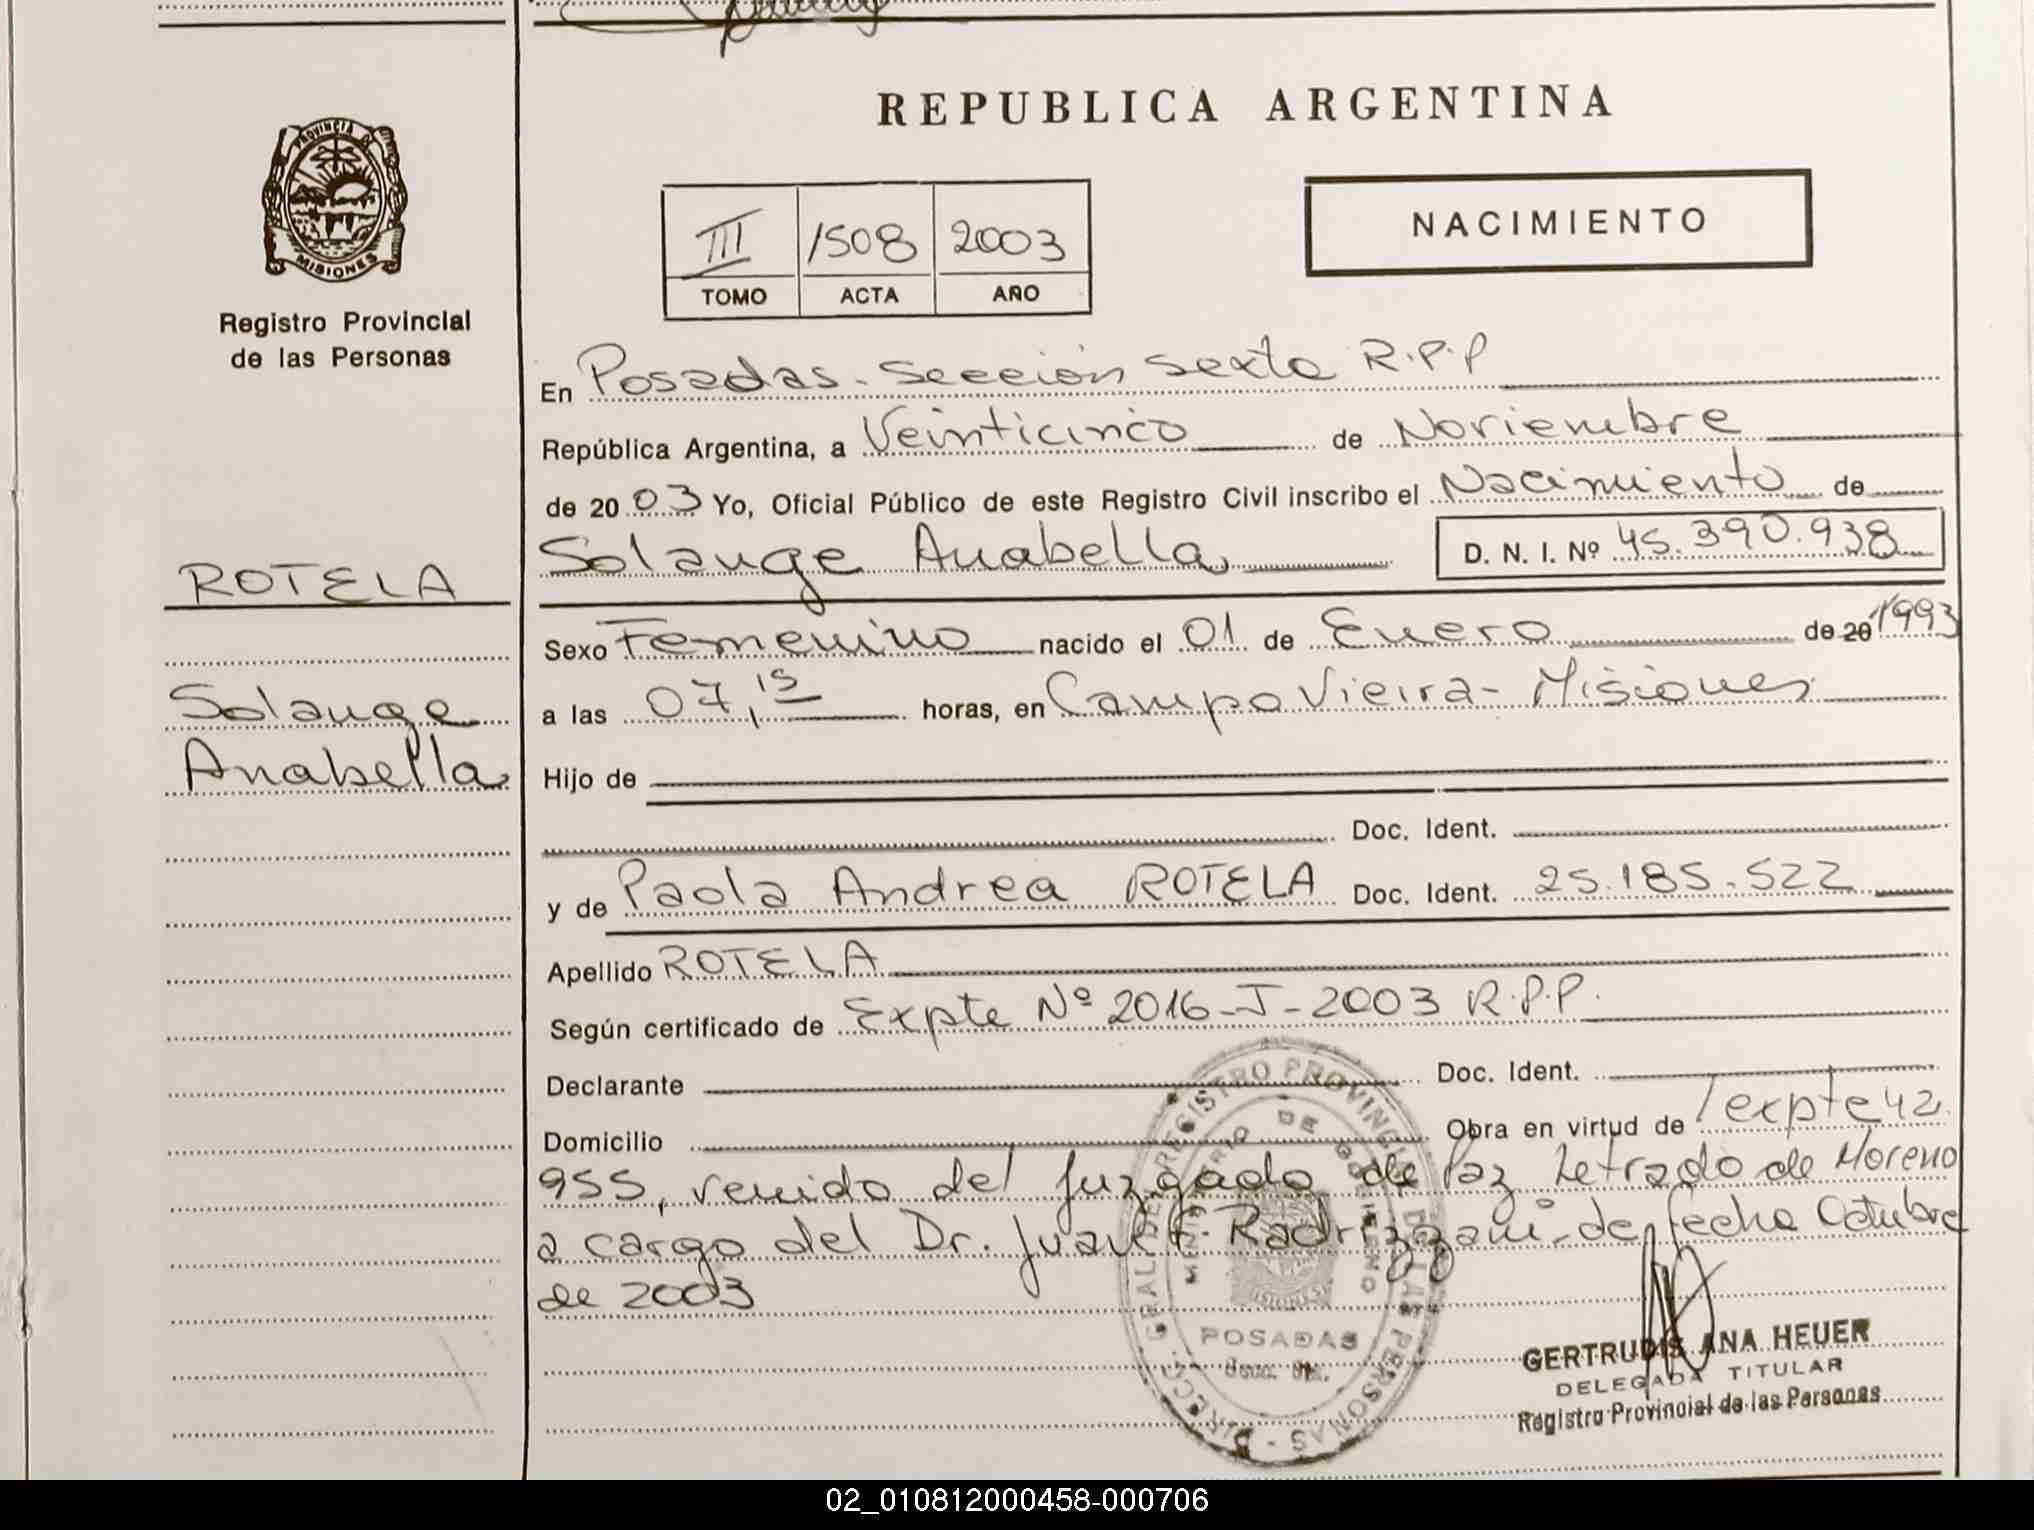 REPUBLICA ARGENTINA
PROVINCIA DE
MISIONES
Registro Provincial
de las Personas
III 1508 2003
TOMO ACTA AÑO
NACIMIENTO
En Posadas. Sección Sexta R.P.P
República Argentina, a Veinticinco de Noviembre
de 20 03 Yo, Oficial Público de este Registro Civil inscribo el Nacimiento de
Solange Anabella D. N. I. Nº 45.390.938
ROTELA
Solange
Anabella
Sexo Femenino nacido el 01 de Enero de 20 1993
a las 07,15 horas, en Campo Vieira - Misiones
Hijo de
Doc. Ident.
y de Paola Andrea ROTELA Doc. Ident. 25.185.522
Apellido ROTELA
Según certificado de Expte Nº 2016-J-2003 R.P.P.
Declarante Doc. Ident.
Domicilio Obra en virtud de expte 42.
955, venido del Juzgado de Paz Letrado de Moreno
a cargo del Dr. Juan Radrizzani - de fecha Octubre
de 2003
DIRECC. GRAL DE REGISTRO PROVINCIAL DE LAS PERSONAS
MINISTERIO DE GOBIERNO
MISIONES
POSADAS
GERTRUDIS ANA HEUER
DELEGADA TITULAR
Registro Provincial de las Personas
02_010812000458-000706